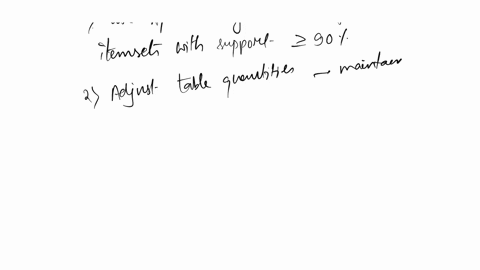 itemsets with support ≥ 90%
2) Adjust table quantities – maintain